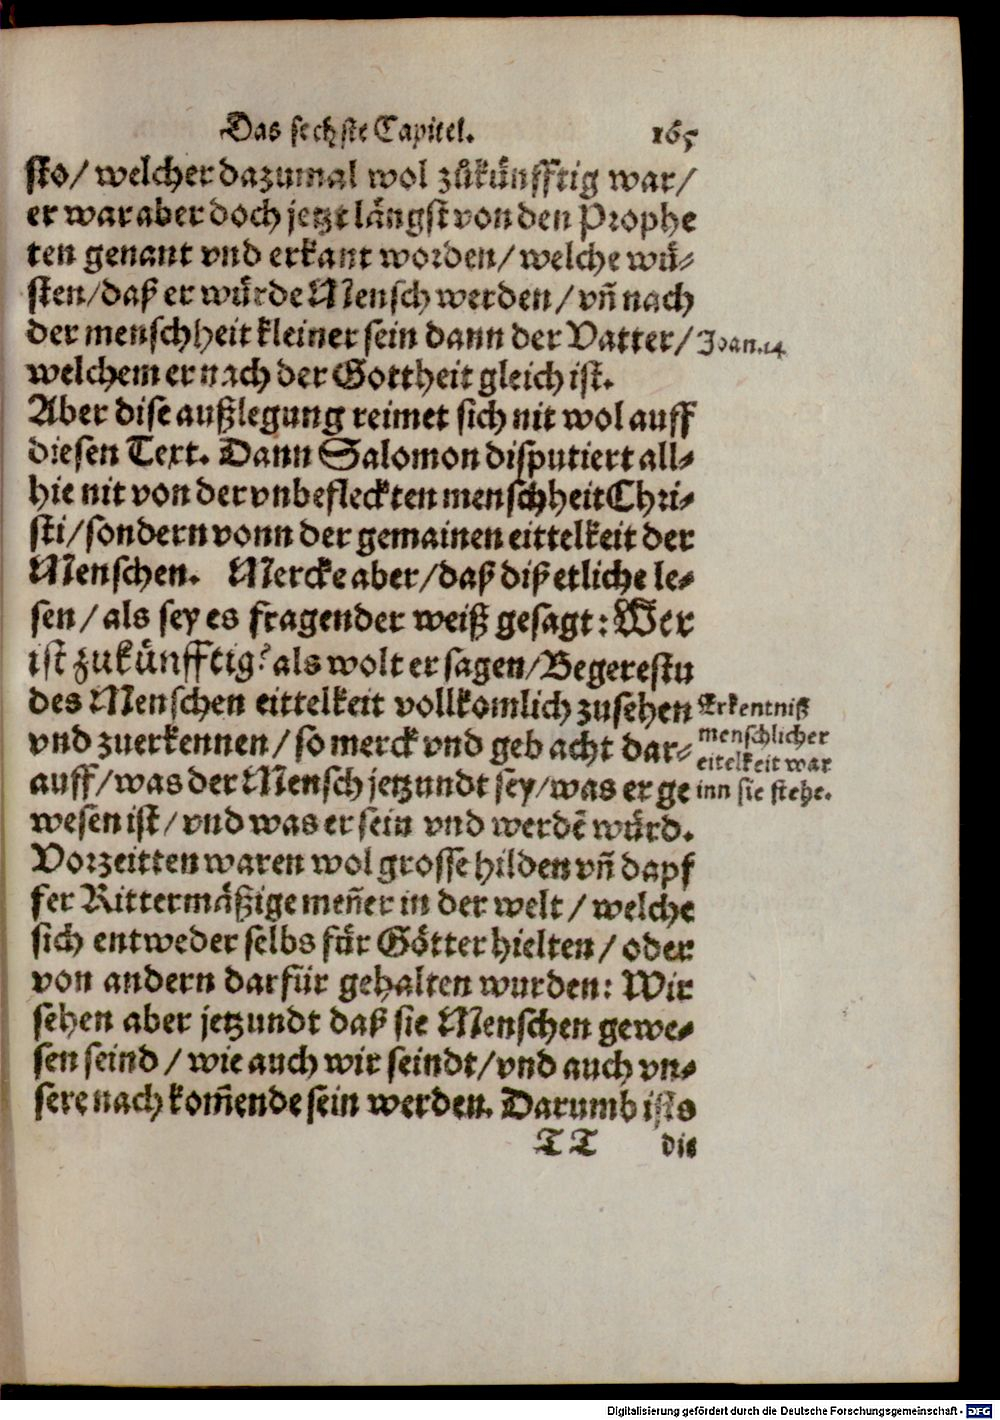 Das sechste Capitel. 165
sto/ welcher dazumal wol zůkünfftig war/
er war aber doch jetzt längst von den Prophe
ten genant vnd erkant worden/ welche wü⸗
sten/ daß er würde Mensch werden/ vñ nach
der menschheit kleiner sein dann der Vatter/
Joan. 14
welchem er nach der Gottheit gleich ist.
Aber dise außlegung reimet sich nit wol auff
diesen Text. Dann Salomon disputiert all⸗
hie nit von der vnbefleckten menschheit Chri⸗
sti/ sondern vonn der gemainen eittelkeit der
Menschen. Mercke aber/ daß diß etliche le⸗
sen/ als sey es fragender weiß gesagt: Wer
ist zukünfftig? als wolt er sagen/ Begerestu
des Menschen eittelkeit vollkomlich zusehen
vnd zuerkennen/ so merck vnd geb acht dar⸗
auff/ was der Mensch jetzundt sey/ was er ge
Erkentniß
menschlicher
eitelkeit war
inn sie stehe.
wesen ist/ vnd was er sein vnd werdẽ würd.
Vorzeitten waren wol grosse hilden vñ dapf
fer Rittermäßige meñer in der welt/ welche
sich entweder selbs für Götter hielten/ oder
von andern darfür gehalten wurden: Wir
sehen aber jetzundt daß sie Menschen gewe⸗
sen seind/ wie auch wir seindt/ vnd auch vn⸗
sere nach kom̃ende sein werden. Darumb ists
TT die
Digitalisierung gefördert durch die Deutsche Forschungsgemeinschaft - DFG